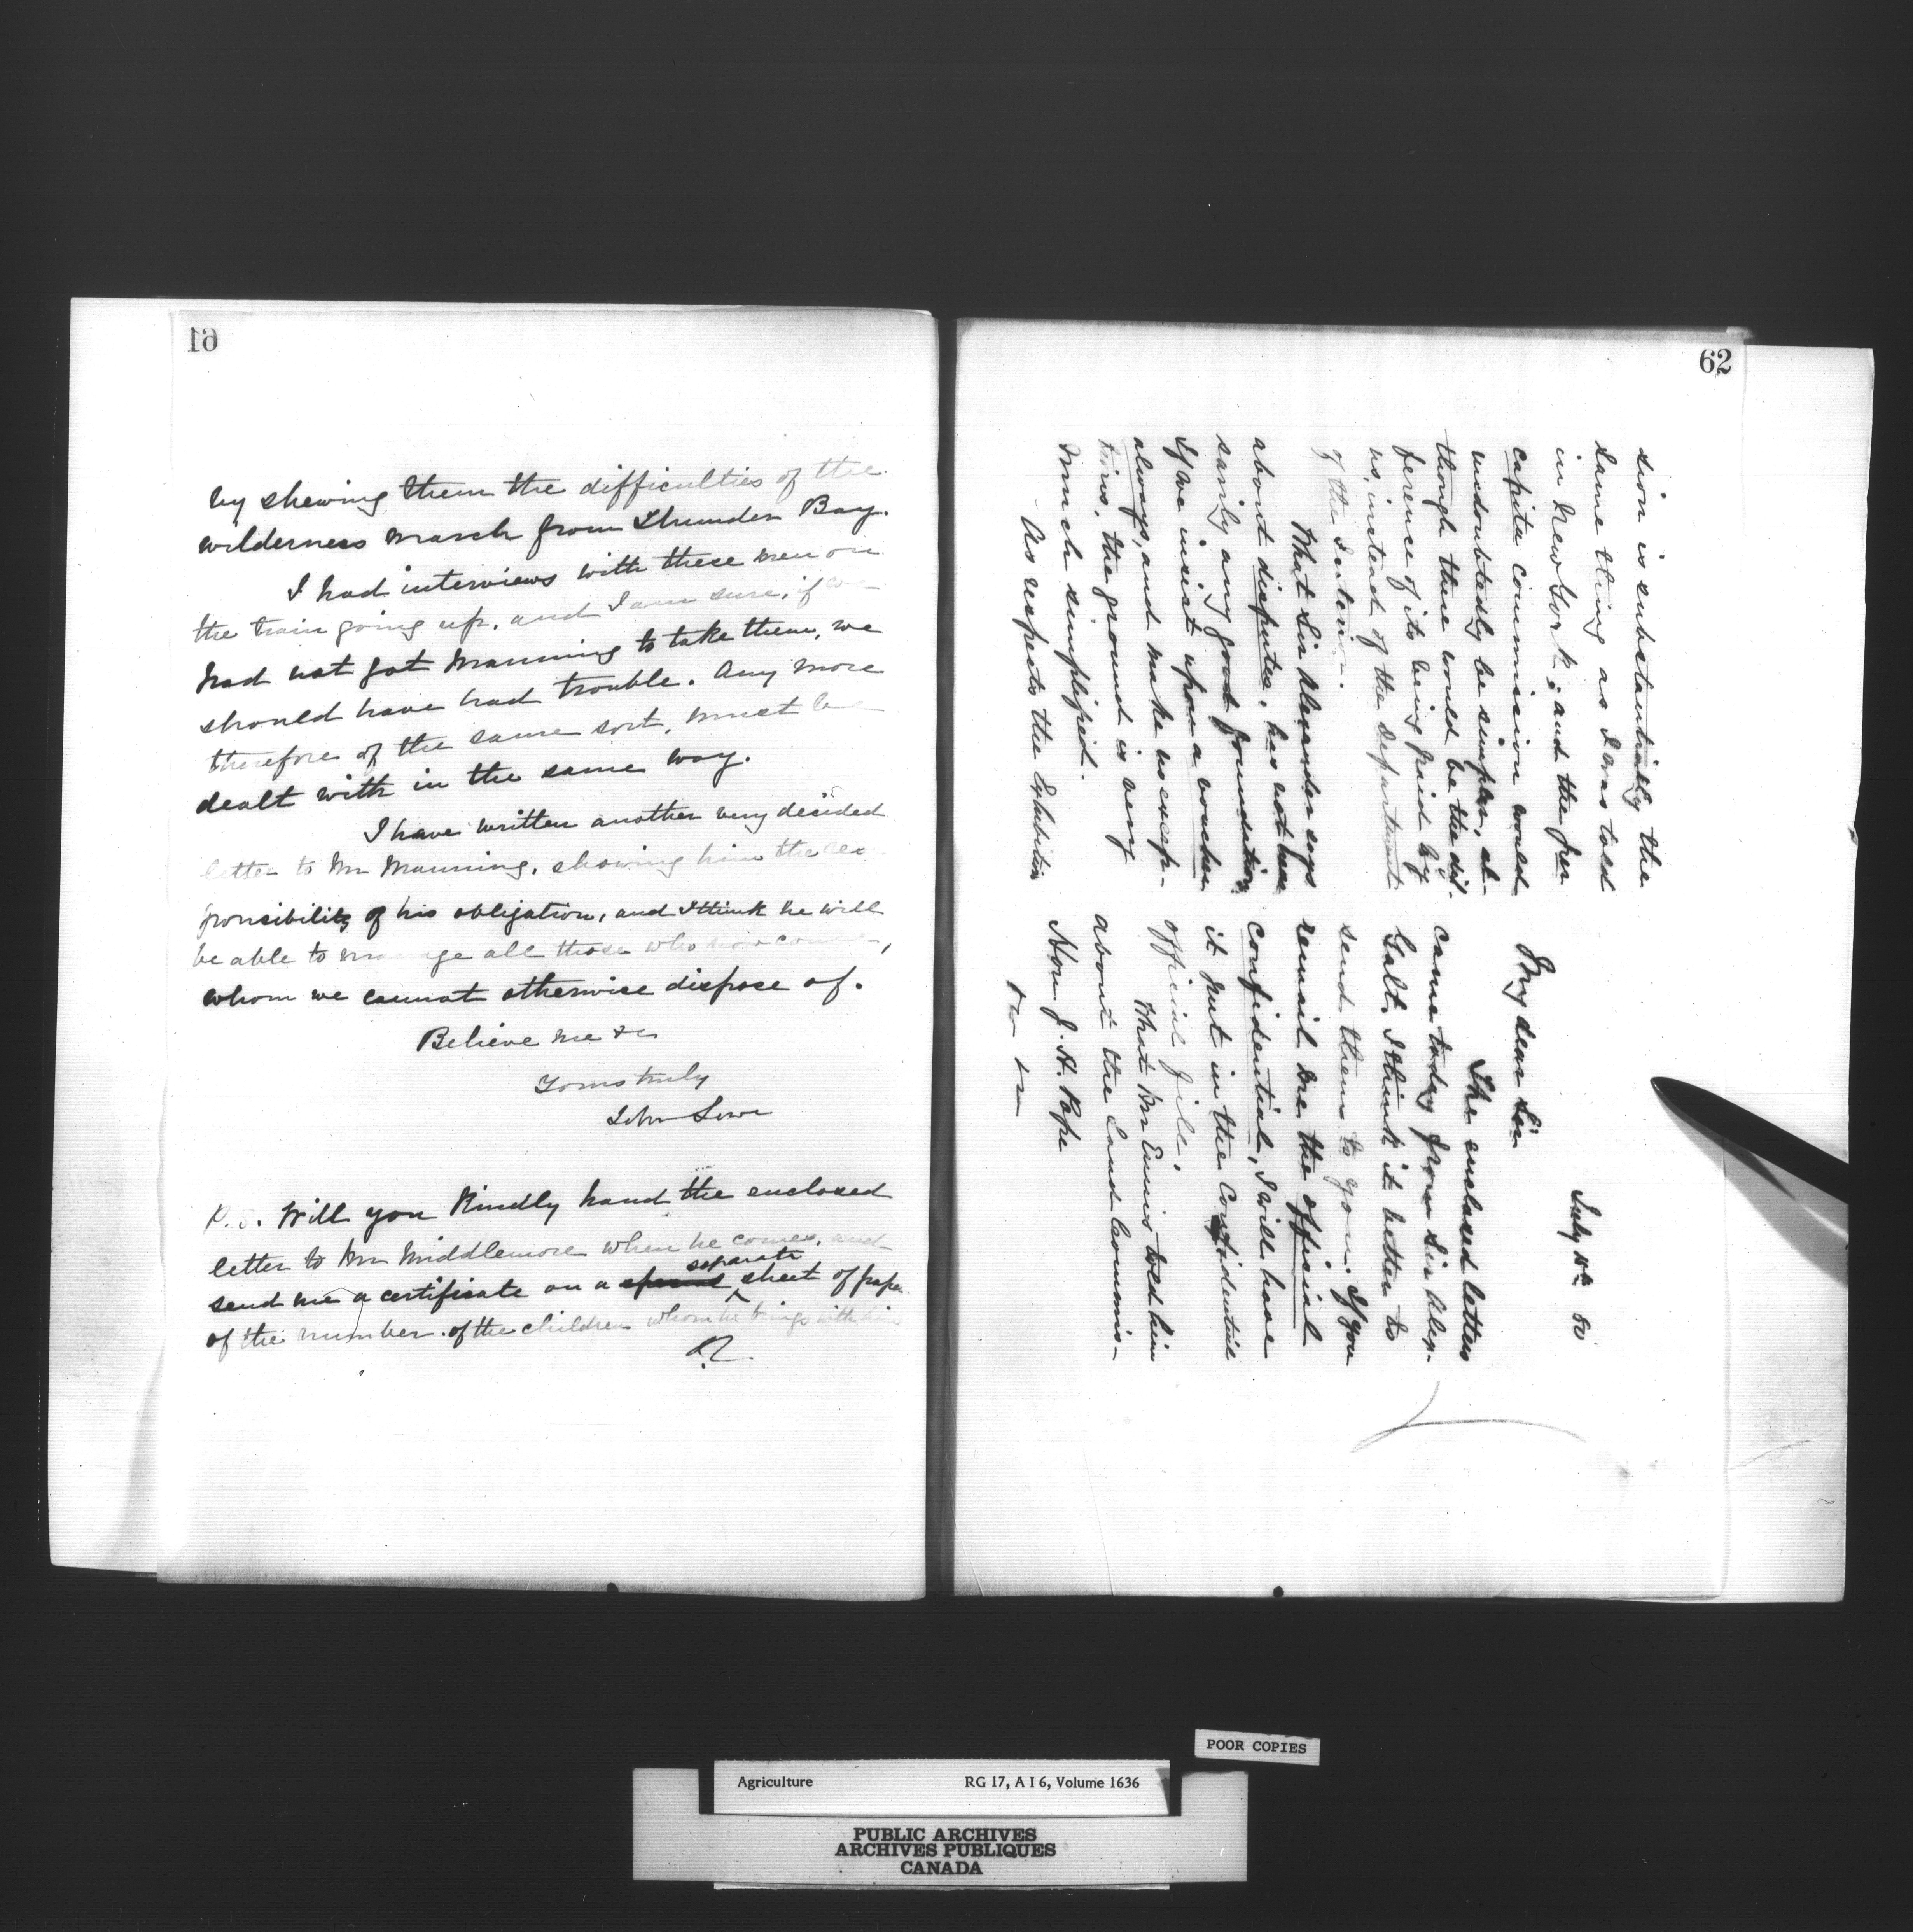 61
by shewing them the difficulties of the
wilderness march from Thunder Bay.
I had interviews with these men on
the train going up, and I am sure, if we
had not got Manning to take them, we
should have had trouble. Any more
therefore of the same sort, must be
dealt with in the same way.
I have written another very decided
letter to Mr Manning, showing him the res
ponsibility of his obligation, and I think he will
be able to manage all those who now come,
whom we cannot otherwise dispose of.
Believe me &c
Yours truly
John Lowe
P.S. Will you kindly hand the enclosed
letter to Mr Middlemore when he comes, and
separate
send me a certificate on a sheet of paper
of the number of the children whom he brings with him
62
July 10th 80
My dear Sir
The enclosed letters
came today from Sir Alex.
Galt. I think it better to
send them to you. If you
remail me the official
confidential, I will have
it put in the Confidential
official file.
What Mr Ennis told him
about the Land Commis-
Hon J. H. Pope
&c &c
sion is substantially the
same thing as I was told
in New York; and the per
capita commission would
undoubtedly be simpler, al-
though there would be the dif-
ference of its being paid by
us, instead of the Department
of the Interior.
What Sir Alexander says
about disputes, has not neces
sarily any good foundation.
If we insist upon a voucher
always, and make no excep-
tions, the ground is very
much simplified.
As respects the Exhibition
POOR COPIES
Agriculture RG 17, A I 6, Volume 1636
PUBLIC ARCHIVES
ARCHIVES PUBLIQUES
CANADA